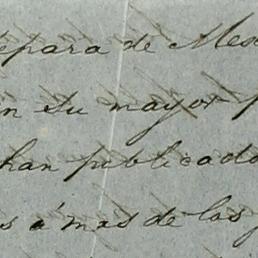 épara de Mes
n su mayor p
han publicado
s á mas de los